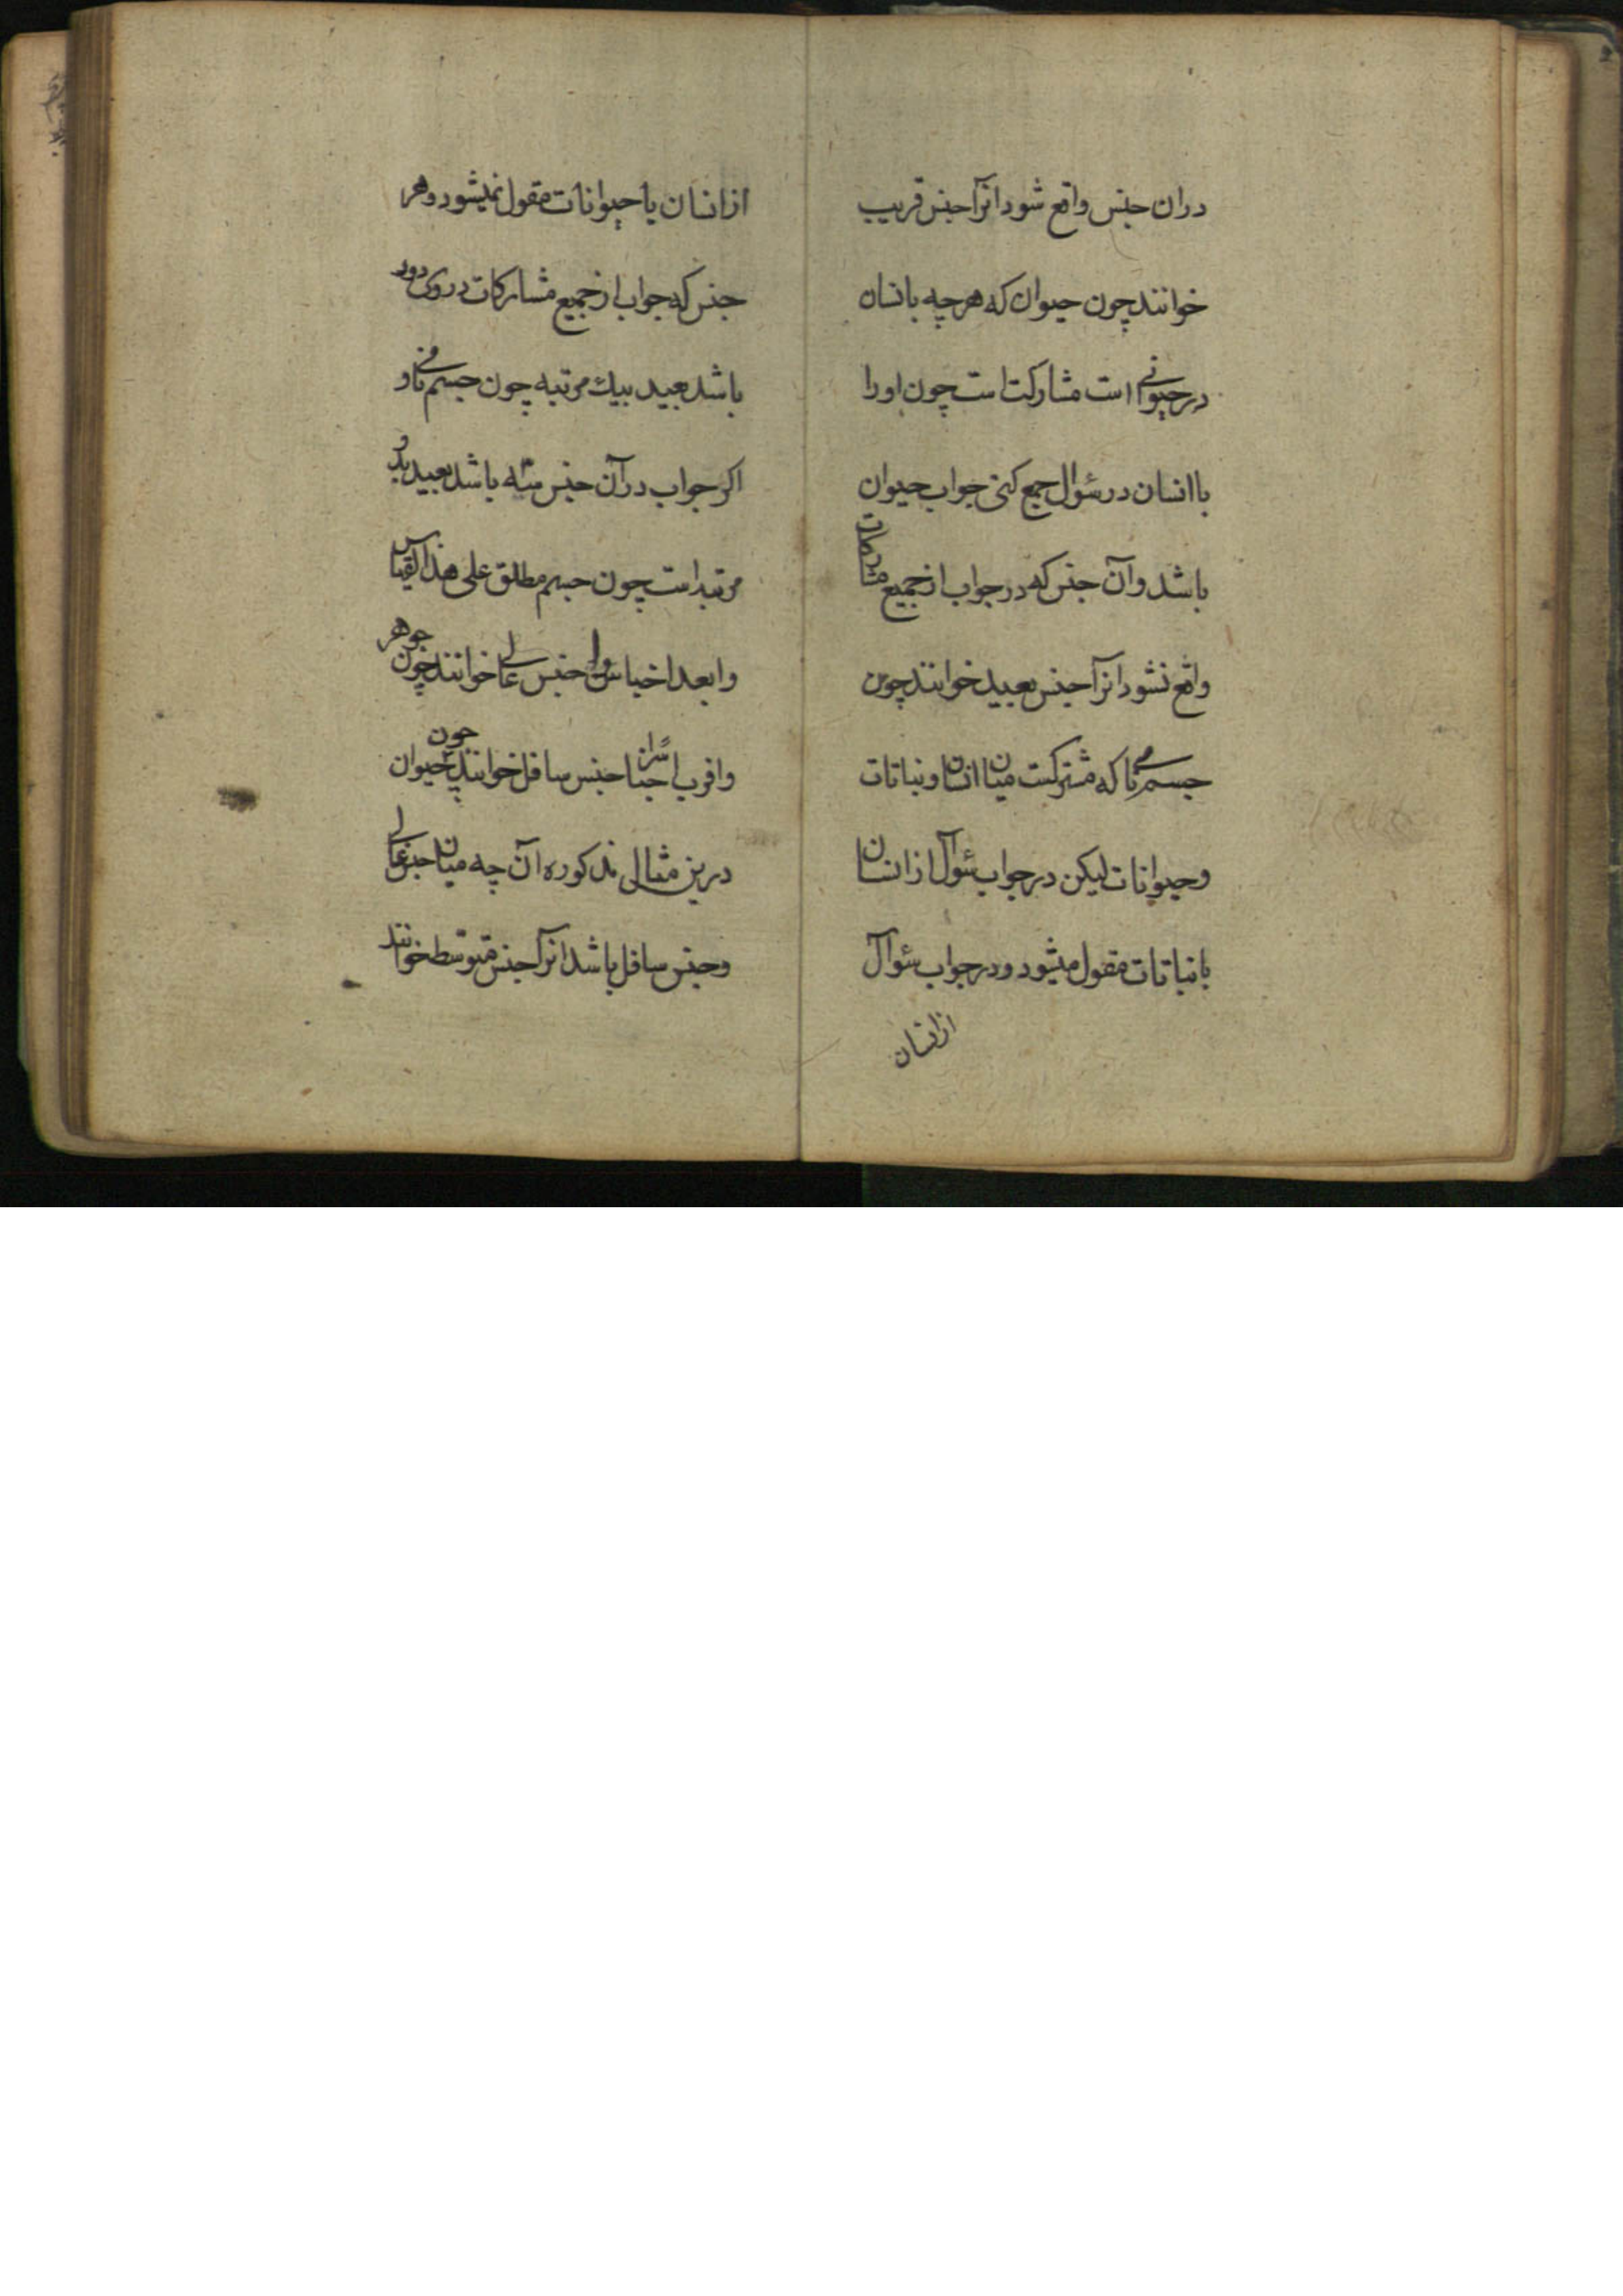 دران جنس واقع شود انرا جنس قریب
خوانند چون حیوان که هر چه بانسان
در حیوانی است مشارکت است چون اورا
با انسان در سئوال جمع کنی جواب حیوان
باشد وآن جنس که در جواب از جمیع مشارکات
واقع نشود انرا جنس بعید خوانند چون
جسم نامی که مشترکست میان انسان و نباتات
وحیوانات لیکن در جواب سئوال از انسان
با نباتات مقول میشود ودر جواب سئوال
ازانسان
از انسان با حیوانات مقول نمیشود وهر
جنس که جواب از جمیع مشارکات در وی دو
باشد بعید بیک مرتبه چون جسم نامی و
اکر جواب در آن جنس سه باشد بعید بدو
مرتبه است چون جسم مطلق علی هذا القیاس
وابعد اجناس را جنس عالی خوانند چون جوهر
واقرب اجناس را جنس سافل خوانند چون حیوان
درین مثالی مذکوره آن چه میان جنس عالی
وجنس سافل باشد انرا جنس متوسط خوانند